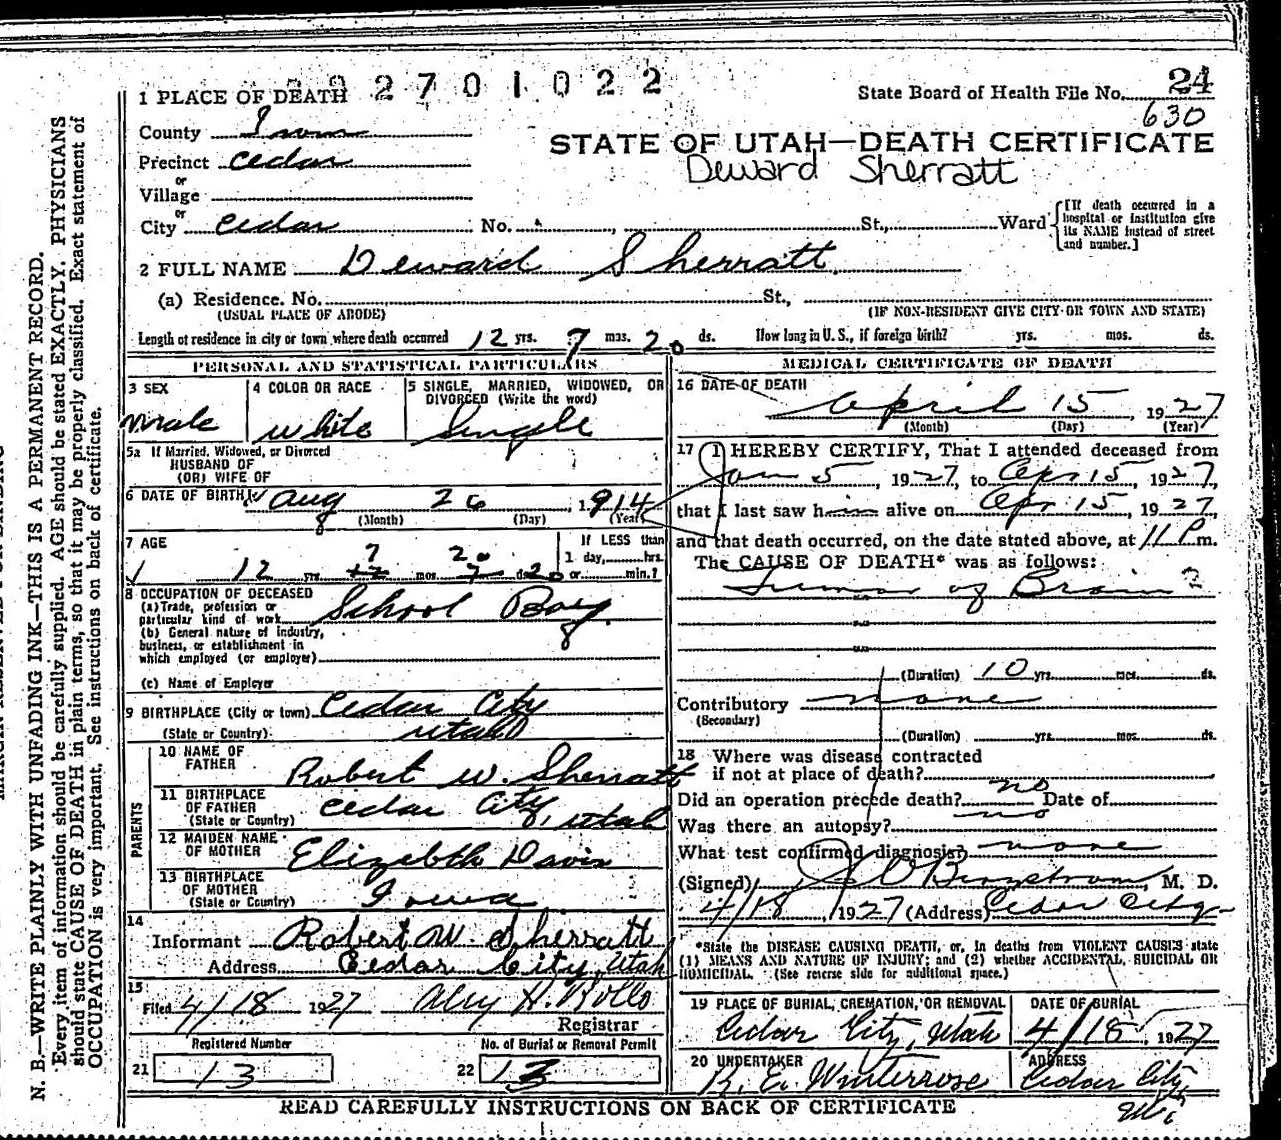 2 7 0 1 0 2 2
24
1 PLACE OF DEATH
State Board of Health File No.
630
County Iron
STATE OF UTAH—DEATH CERTIFICATE
Precinct Cedar
Deward Sherratt
or
Village
or
City Cedar No. , St., Ward
[If death occurred in a
hospital or institution give
its NAME instead of street
and number.]
2 FULL NAME Deward Sherratt
(a) Residence. No. St.,
(USUAL PLACE OF ABODE) (IF NON-RESIDENT GIVE CITY OR TOWN AND STATE)
Length of residence in city or town where death occurred 12 yrs. 7 mos. 20 ds. How long in U.S., if foreign birth? yrs. mos. ds.
PERSONAL AND STATISTICAL PARTICULARS
3 SEX
Male
4 COLOR OR RACE
White
5 SINGLE, MARRIED, WIDOWED, OR
DIVORCED (Write the word)
Single
5a If Married, Widowed, or Divorced
HUSBAND OF
(OR) WIFE OF
6 DATE OF BIRTH Aug 26, 1914
8 (Month) (Day) (Year)
7 AGE
If LESS than
7 20
1 day, hrs.
12 yrs. mos. ds. 20 or min.?
8 OCCUPATION OF DECEASED
(a) Trade, profession or
particular kind of work School Boy
(b) General nature of industry,
business, or establishment in
which employed (or employer)
8
(c) Name of Employer
9 BIRTHPLACE (City or town) Cedar City
(State or Country) Utah
PARENTS
10 NAME OF
FATHER Robert W. Sherratt
11 BIRTHPLACE
OF FATHER
(State or Country) Cedar City, Utah
12 MAIDEN NAME
OF MOTHER Elizebth Davis
13 BIRTHPLACE
OF MOTHER
(State or Country) Iowa
14
Informant Robert W. Sherratt
Address Cedar City, Utah
15
Filed 4/18 1927
Registrar
Registered Number
21 13
No. of Burial or Removal Permit
22 13
MEDICAL CERTIFICATE OF DEATH
16 DATE OF DEATH
April 15, 1927
(Month) (Day) (Year)
17 I HEREBY CERTIFY, That I attended deceased from
Jan 5, 1927, to Apr 15, 1927,
that I last saw him alive on Apr 15, 1927,
and that death occurred, on the date stated above, at 11 P m.
The CAUSE OF DEATH* was as follows:
Tumor of Brain ?
(Duration) 10 yrs. mos. ds.
Contributory none
(Secondary)
(Duration) yrs. mos. ds.
18 Where was disease contracted
if not at place of death?
Did an operation precede death? no Date of
Was there an autopsy? no
What test confirmed diagnosis? none
(Signed) , M. D.
4/18, 1927 (Address) Cedar City
*State the DISEASE CAUSING DEATH, or, in deaths from VIOLENT CAUSES state
(1) MEANS AND NATURE OF INJURY; and (2) whether ACCIDENTAL, SUICIDAL OR
HOMICIDAL. (See reverse side for additional space.)
19 PLACE OF BURIAL, CREMATION, OR REMOVAL
Cedar City, Utah
DATE OF BURIAL
4/18, 1927
20 UNDERTAKER
R. E. Winterrose
ADDRESS
Cedar City,
READ CAREFULLY INSTRUCTIONS ON BACK OF CERTIFICATE
N. B.—WRITE PLAINLY WITH UNFADING INK—THIS IS A PERMANENT RECORD.
Every item of information should be carefully supplied. AGE should be stated EXACTLY. PHYSICIANS
should state CAUSE OF DEATH in plain terms, so that it may be properly classified. Exact statement of
OCCUPATION is very important. See instructions on back of certificate.